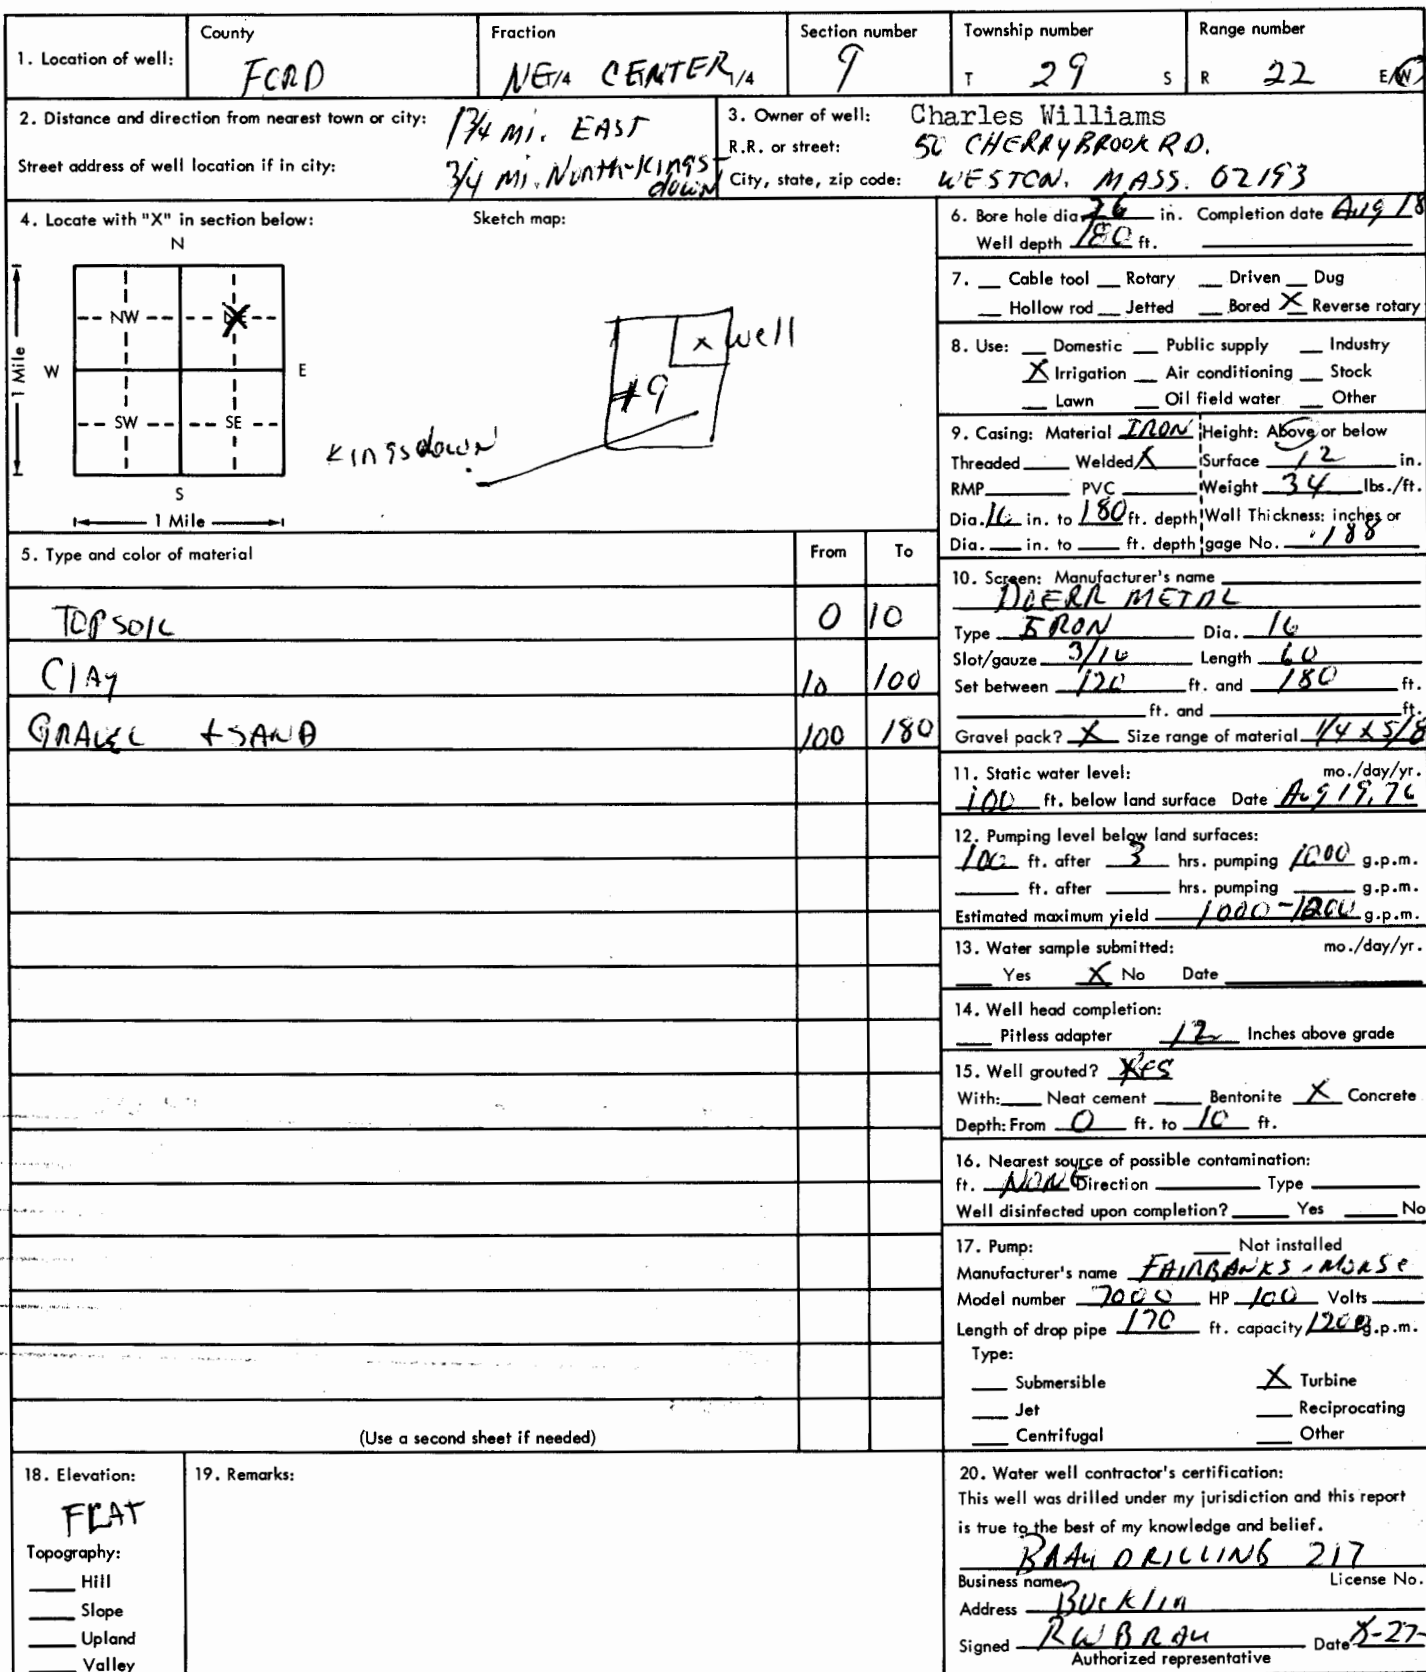 1. Location of well:
County
FORD
Fraction
NE1/4 CENTER 1/4
Section number
9
Township number
T 29 S
Range number
R 22 E/W
2. Distance and direction from nearest town or city: 1 3/4 mi. EAST
Street address of well location if in city: 3/4 mi. North-Kings
down
3. Owner of well: Charles Williams
R.R. or street: 50 CHERRYBROOK RD.
City, state, zip code: WESTON. MASS. 02193
4. Locate with "X" in section below:
Sketch map:
N
NW
X
1 Mile
W
E
SW
SE
S
1 Mile
X well
#9
Kingsdown
5. Type and color of material From To
TOPSOIL 0 10
CLAY 10 100
GRAVEL + SAND 100 180
(Use a second sheet if needed)
6. Bore hole dia 26 in. Completion date Aug 18
Well depth 180 ft.
7. Cable tool Rotary Driven Dug
Hollow rod Jetted Bored X Reverse rotary
8. Use: Domestic Public supply Industry
X Irrigation Air conditioning Stock
Lawn Oil field water Other
9. Casing: Material IRON Height: Above or below
Threaded Welded X Surface 12 in.
RMP PVC Weight 34 lbs./ft.
Dia. 16 in. to 180 ft. depth Wall Thickness: inches or
Dia. in. to ft. depth gage No. .188
10. Screen: Manufacturer's name
DOERR METAL
Type IRON Dia. 16
Slot/gauze 3/16 Length 60
Set between 120 ft. and 180 ft.
ft. and ft.
Gravel pack? X Size range of material 1/4 x 5/8
11. Static water level: mo./day/yr.
100 ft. below land surface Date Aug 19, 76
12. Pumping level below land surfaces:
100 ft. after 3 hrs. pumping 1000 g.p.m.
ft. after hrs. pumping g.p.m.
Estimated maximum yield 1000-1200 g.p.m.
13. Water sample submitted: mo./day/yr.
Yes X No Date
14. Well head completion:
Pitless adapter 12 Inches above grade
15. Well grouted? Yes
With: Neat cement Bentonite X Concrete
Depth: From 0 ft. to 10 ft.
16. Nearest source of possible contamination:
ft. NONE Direction Type
Well disinfected upon completion? Yes No
17. Pump: Not installed
Manufacturer's name FAIRBANKS-MORSE
Model number 7000 HP 100 Volts
Length of drop pipe 170 ft. capacity 1200 g.p.m.
Type:
Submersible X Turbine
Jet Reciprocating
Centrifugal Other
18. Elevation:
FLAT
Topography:
Hill
Slope
Upland
Valley
19. Remarks:
20. Water well contractor's certification:
This well was drilled under my jurisdiction and this report
is true to the best of my knowledge and belief.
BRAU DRILLING 217
Business name License No.
Address Bucklin
Signed RW BRAU Date 8-27-
Authorized representative